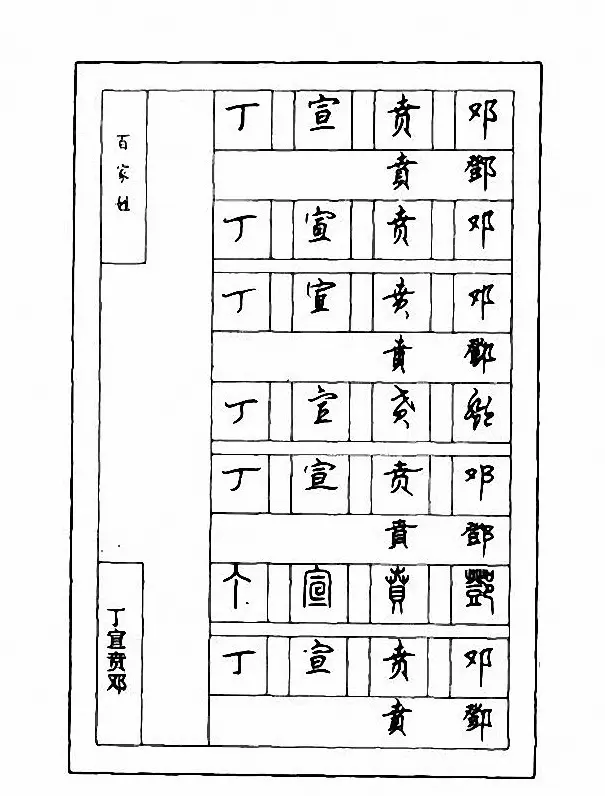 百家姓
丁 宣 贲 邓
賁 鄧
丁 宣 贲 邓
丁 宣 贲 邓
賁 鄧
丁 宣 贲 鄧
丁 宣 贲 邓
賁 鄧
丁 宣 賁 鄧
丁 宣 贲 邓
賁 鄧
丁宣贲邓